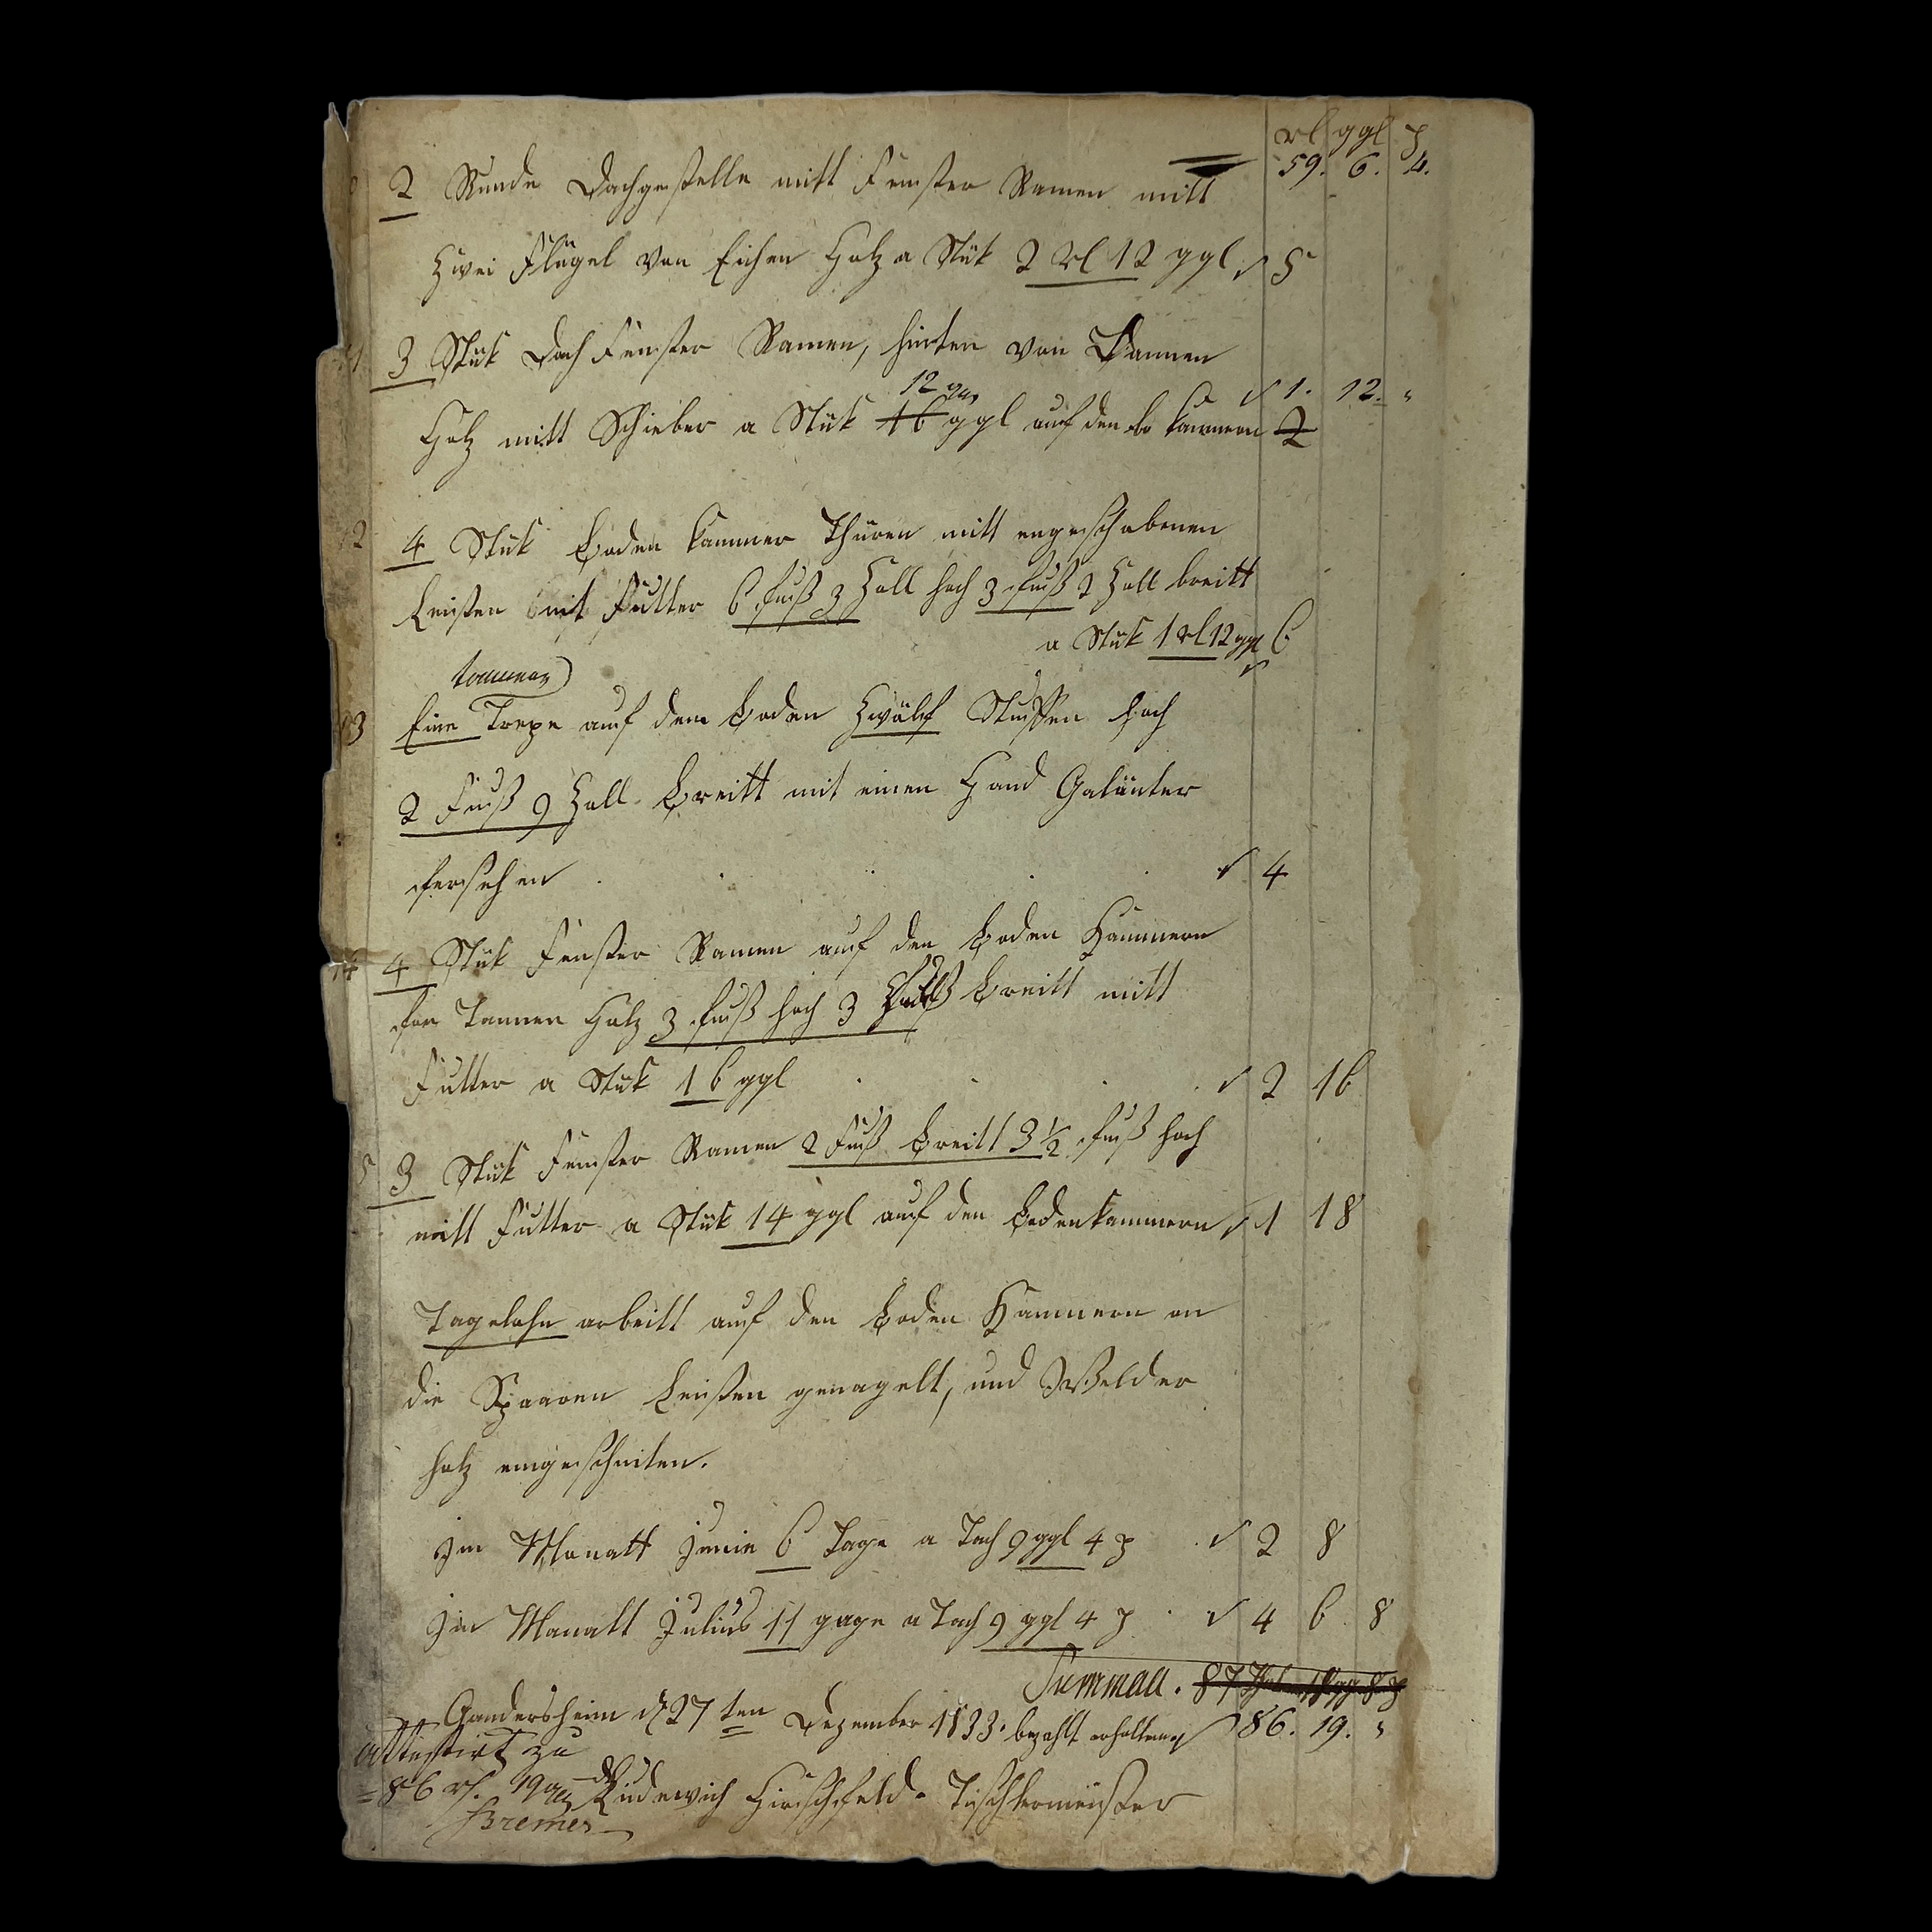 rl ggl ₰
59. 6. 4.
2 Runde Dachgestelle mitt Fenster Ramen mitt
Zwei Flügel von Eichen Holz a Stük 2 rl 12 ggl 5
11 3 Stük Dach Fenster Ramen, hinten von Dannen
12 ggr 1. 12. "
Holz mitt Schieber a Stük 16 ggl auf den bo kammern 2
12 4 Stük Boden kammer Thüren mitt engeschobenen
Leisten mit Futter 6 fuß 3 Zoll hoch 3 fuß 2 Zoll breitt
a Stük 1 rl 12 ggl 6
tannene
13 Eine Trepe auf dem Boden Zwölf Stuffen hoch
2 Fuß 9 Zoll Breitt mit einen Hand Galänter
fersehen 4
14 4 Stük Fenster Ramen auf den Boden Kammern
fon Tannen Holz 3 fuß hoch 3 Fuß Breitt mitt
Futter a Stük 16 ggl 2 16
5 3 Stük Fenster Ramen 2 Fuß Breitt 3 1/2 fuß hoch
mitt Futter a Stük 14 ggl auf den Bodenkammern 1 18
Tagelohn arbeitt auf den Boden Kammern an
die Sparren Leisten genagelt, und Welder
holz eingeschniten.
Im Monatt Junie 6 Tage a Tach 9 ggl 4 ₰ 2 8
Im Monatt Julius 11 gage a Tach 9 ggl 4 ₰ 4 6 8
Summall. 87 8 ₰
Gandersheim d 27 ten Dezember 1833. bezahlt erhalten 86. 19. "
attestirt zu
= 86 rl. 19 ggr Ludewich Hirschfeld. Tischlermeister
Bremer